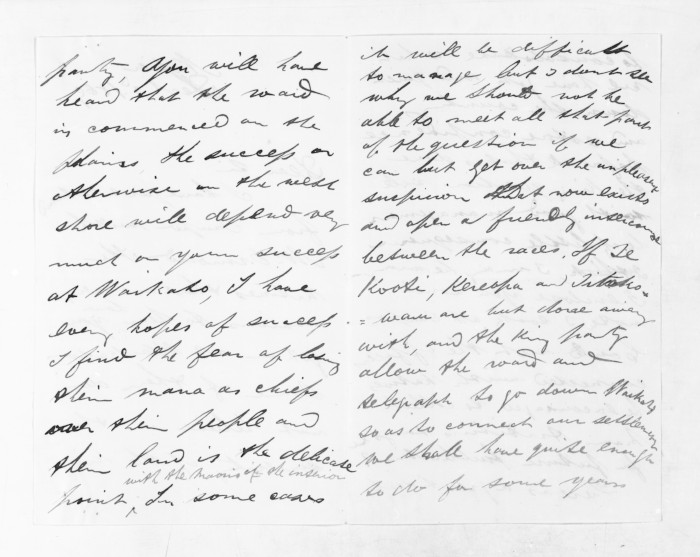 party, You will have
heard that the road
is commenced on the
the success or
otherwise on the west
shore will depend very
much on your success
at Waikato, I have
every hopes of success
I find the fear of losing
their mana as chiefs
over their people and
their land is the delicate
with the Maoris of the interior
point, In some cases
it will be difficult
to manage, but I dont see
why we should not be
able to meet all that part
of the question if we
can but get over the unpleasant
suspicion that now exists
and open a friendly intercourse
between the races. If Te
Kooti, Kereopa and Titoko=
=waru are but done away
with, and the King party
allow the road and
telegraph to go down Waikato
so as to connect our settlements
we shall have quite enough
to do for some years